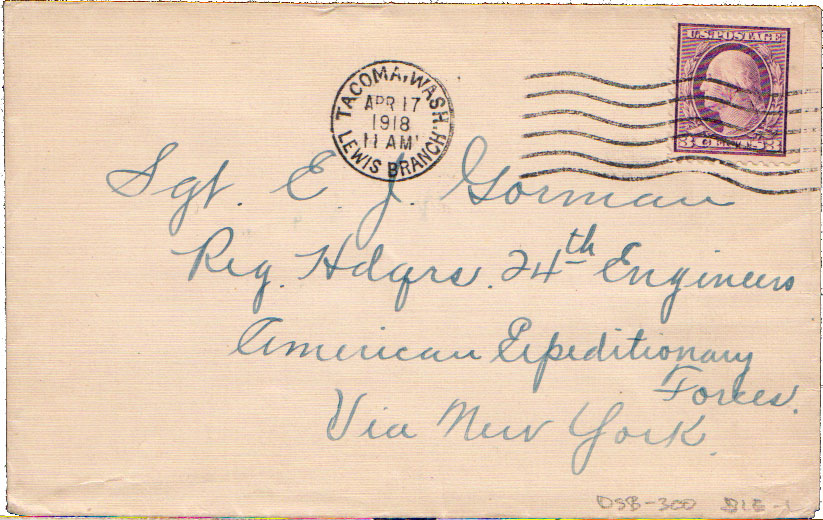 U.S. POSTAGE
TACOMA, WASH.
APR 17
1918
11 AM
LEWIS BRANCH
3 CENTS 3
Sgt. E J. Gorman
Reg. Hdqrs. 24th Engineers
American Expeditionary
Forces.
Via New York.
DSS-300